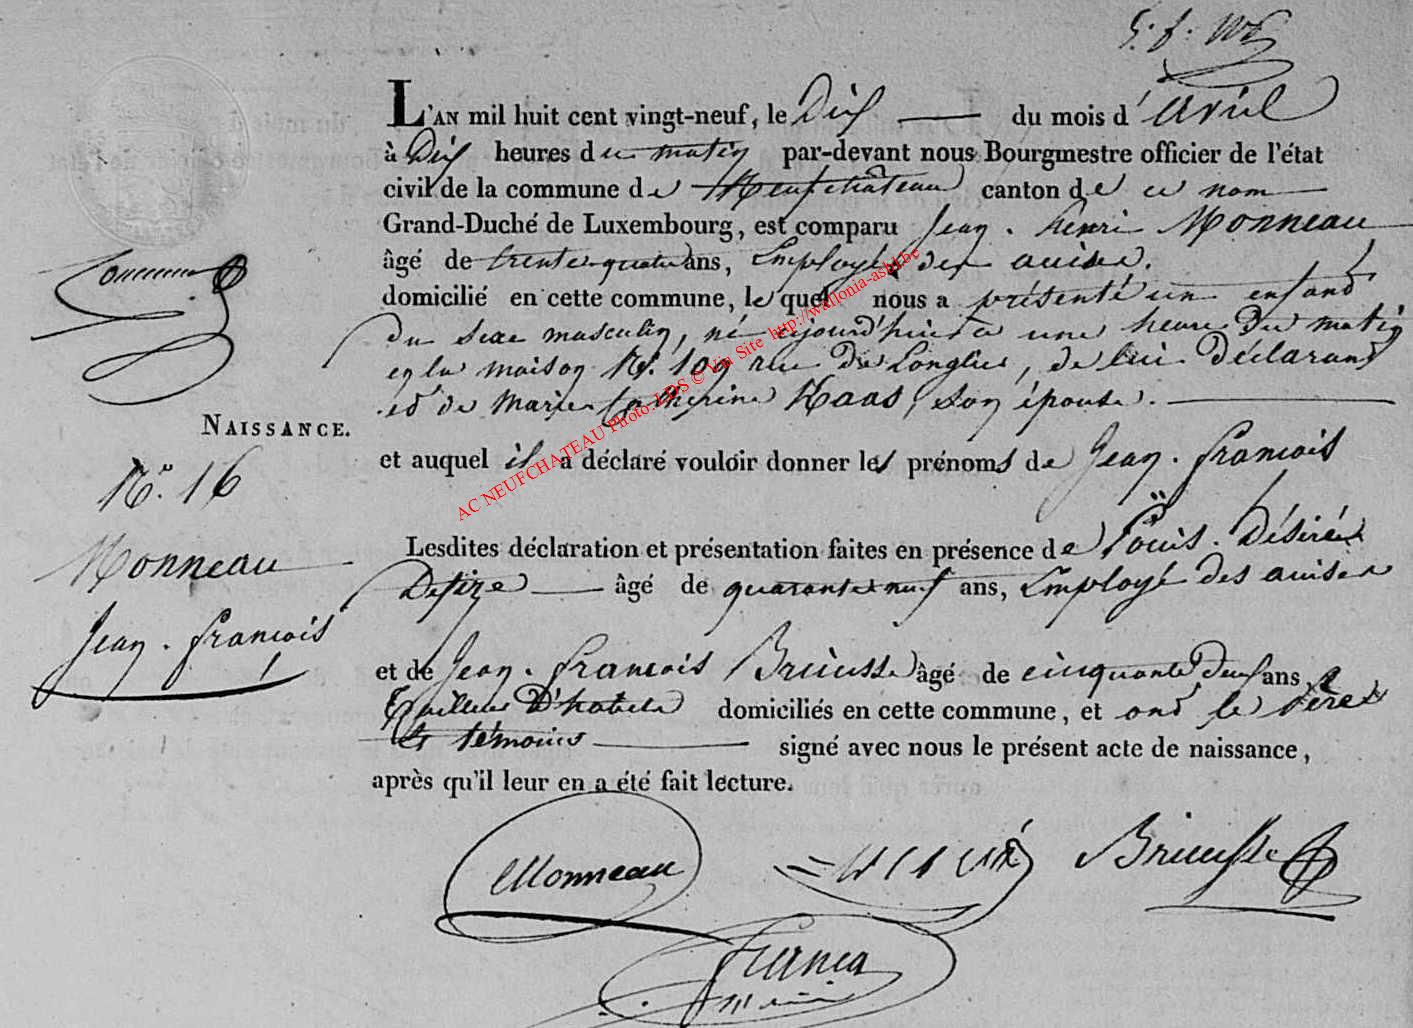 L'AN mil huit cent vingt-neuf, le Dix du mois d'avril
à Dix heures du matin par-devant nous Bourgmestre officier de l'état
civil de la commune de Neufchâteau canton de ce nom
Grand-Duché de Luxembourg, est comparu Jean-henri Monneau
âgé de trente-quatre ans, Employé des accises.
domicilié en cette commune, lequel nous a présenté un enfant
du sexe masculin, né a une heure du matin
en la maison N°. 109 rue de Longlier, de lui déclarant
et de Marie Catherine Haas, son épouse.
NAISSANCE.
et auquel il a déclaré vouloir donner les prénoms de Jean-francois
N°. 16
Monneau
Jean-francois
Lesdites déclaration et présentation faites en présence de Louis-Désiré
âgé de quarante neuf ans, Employé des accises
et de Jean-francois Brieusse âgé de cinquante Deux ans,
Tailleur D'habits domiciliés en cette commune, et ont le père et
les témoins signé avec nous le présent acte de naissance,
après qu'il leur en a été fait lecture.
Monneau
Brieusse
AC NEUFCHATEAU Photo: LDS © Via Site http://wallonia-asbl.be